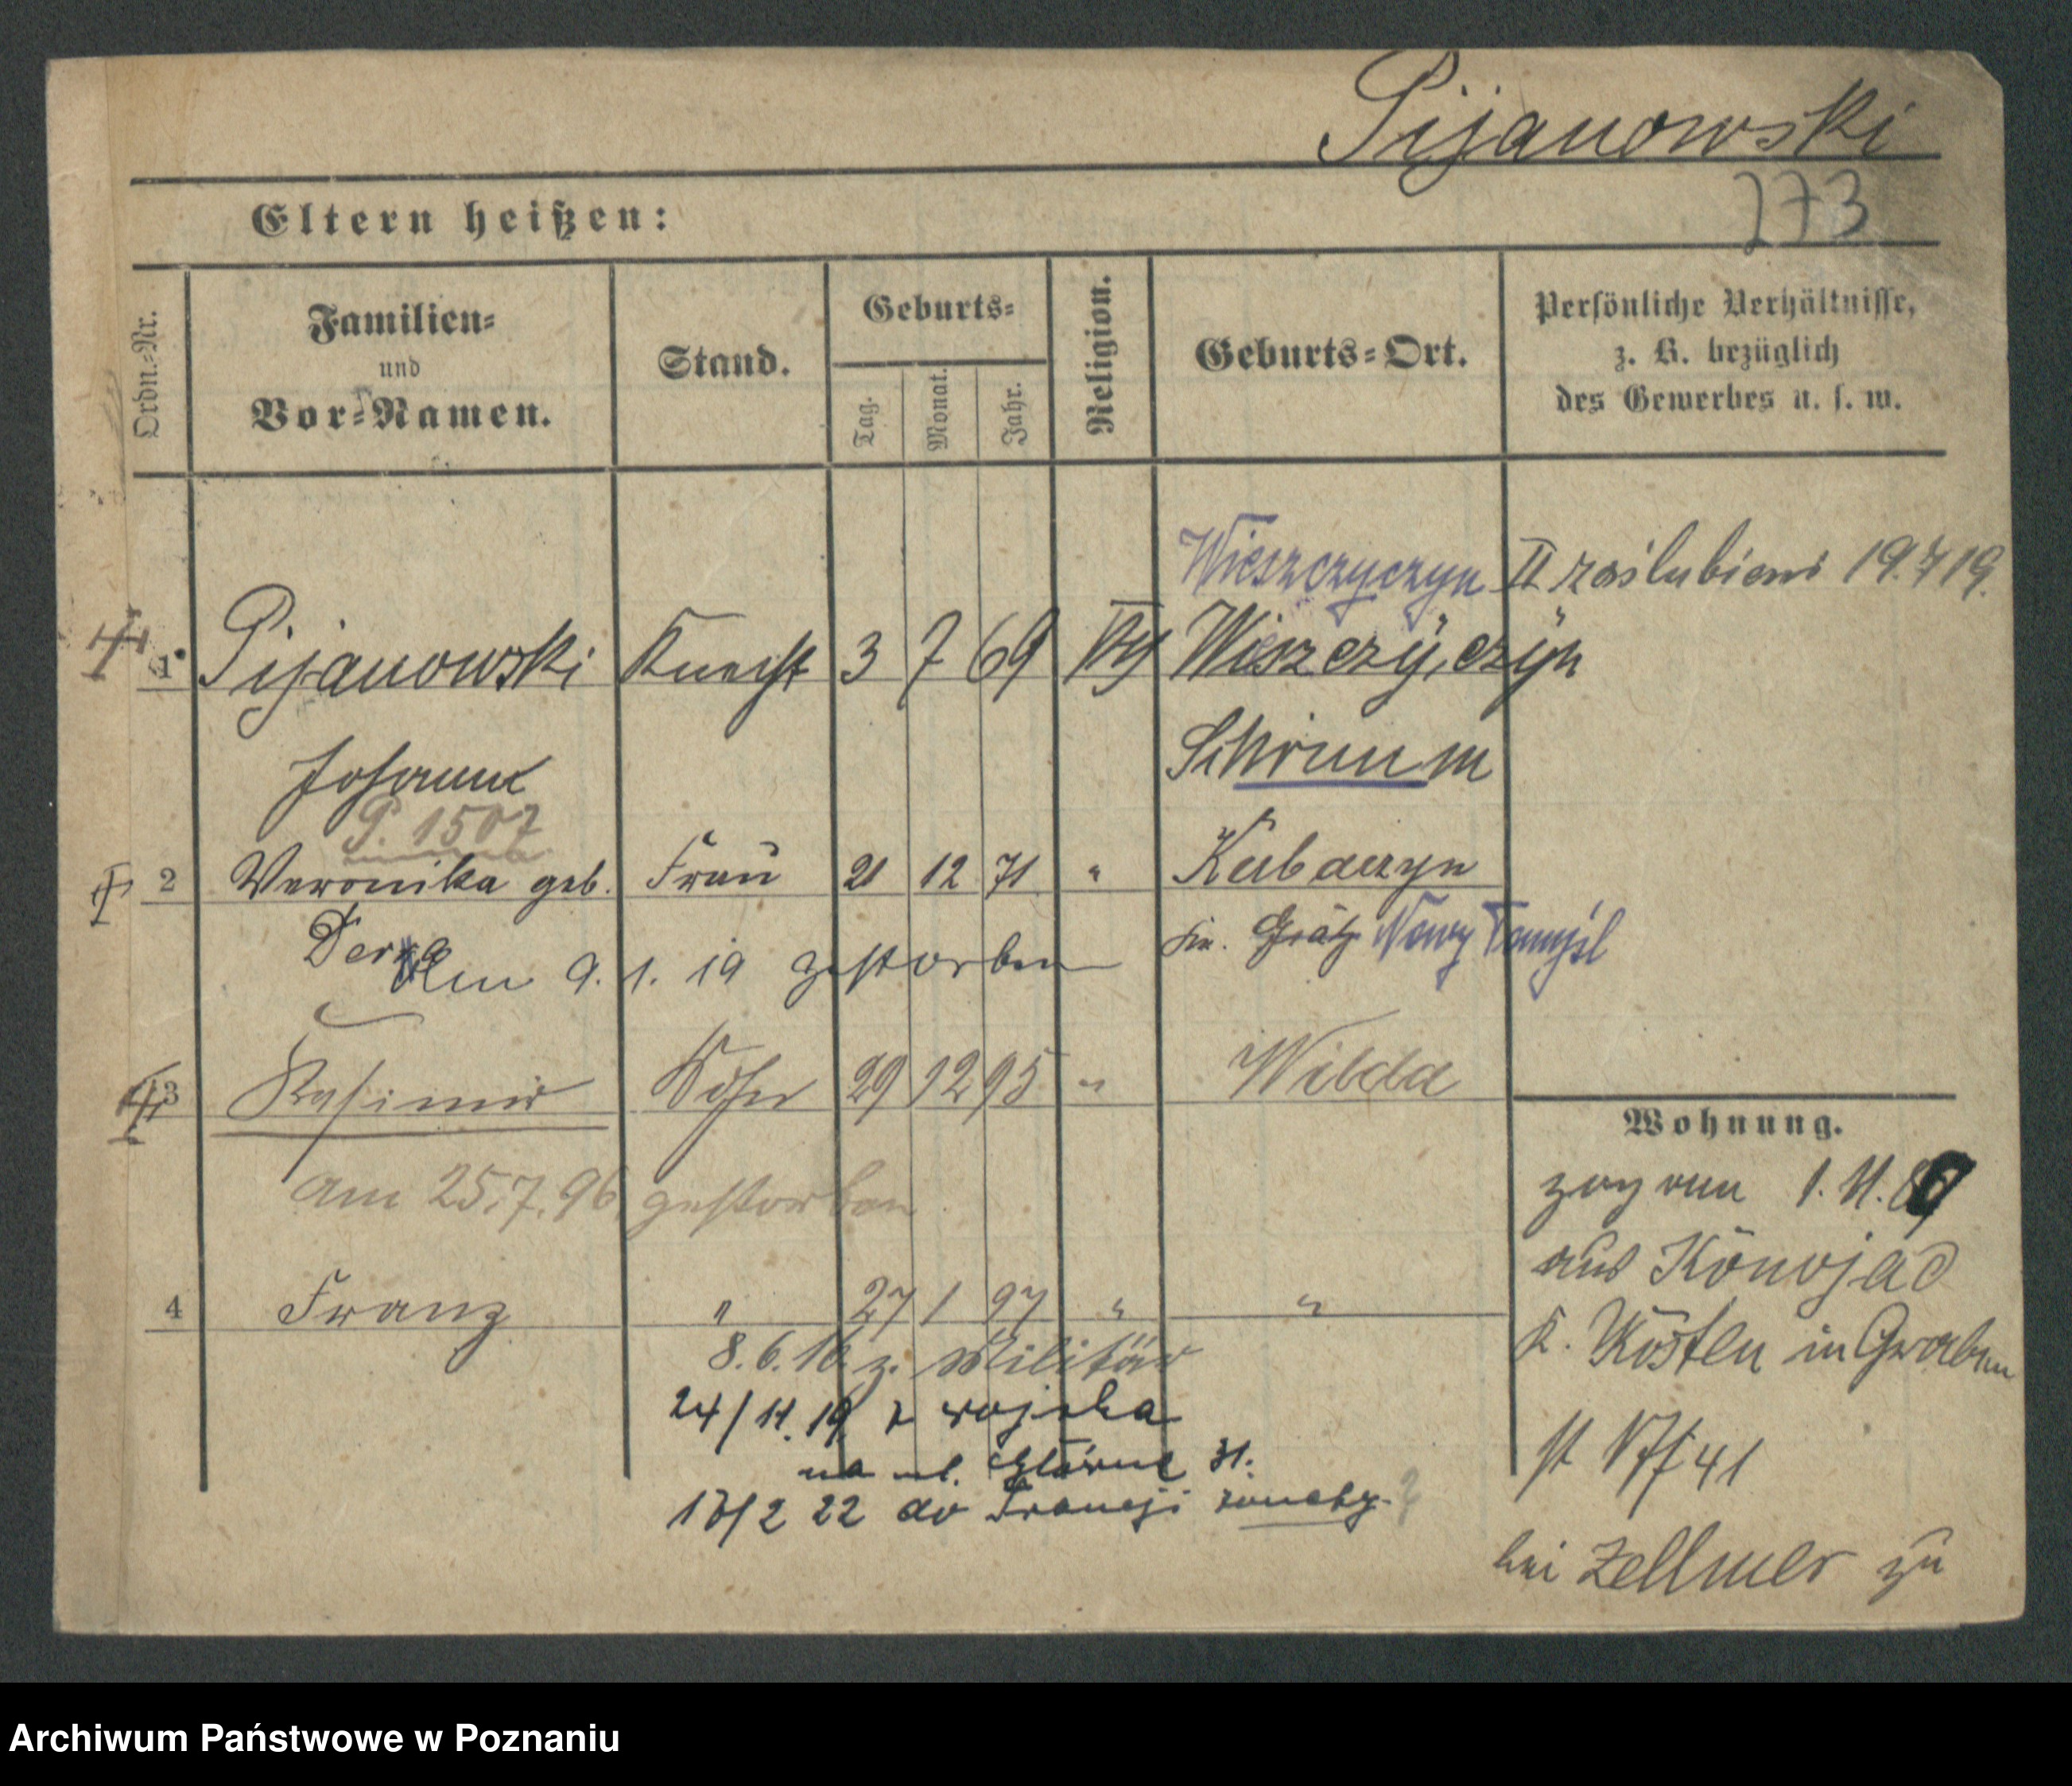 Pijanowski
273
Eltern heißen:
Ordn.-Nr.
Familien-
und
Vor-Namen.
Stand.
Geburts-
Tag.
Monat.
Jahr.
Religion.
Geburts-Ort.
Persönliche Verhältnisse,
z. B. bezüglich
des Gewerbes u. s. w.
Wieszczyczyn II zaślubieni 19.7 19.
1 Pijanowski Knecht 3 7 69 Wiszczyczyn
Johann Schrimm
P. 1507
2 Veronika geb. Frau 21 12 71 " Kubaczyn
Am 9. 1. 19 gestorben Kr. Grätz Nowy Tomyśl
3 Kasimir Sohn 29 12 95 " Wilda
am 25.7.96 gestorben
4 Franz " 27 1 97 " "
8.6.16 z. Militär
24/11.19 z wojska
na ul. Główną 31.
18/2 22 do Francji
Wohnung.
zog am 1. 11.
aus Konojad
K. Kosten in Graben
st 41
bei Zellmer zu
Archiwum Państwowe w Poznaniu